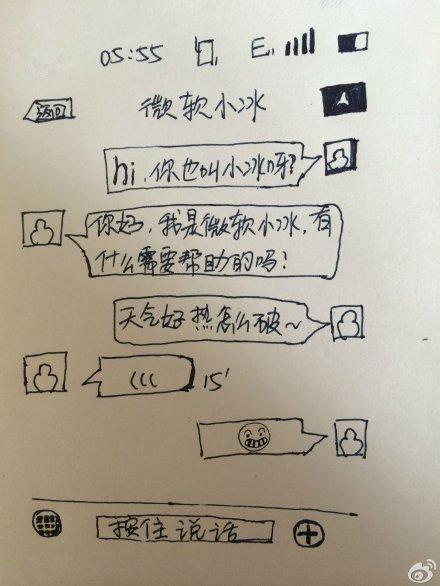 05:55 E
返回 微软小冰
hi.你也叫小冰呀?
你好,我是微软小冰,有
什么需要帮助的吗?
天气好热怎么破~
15'
按住说话